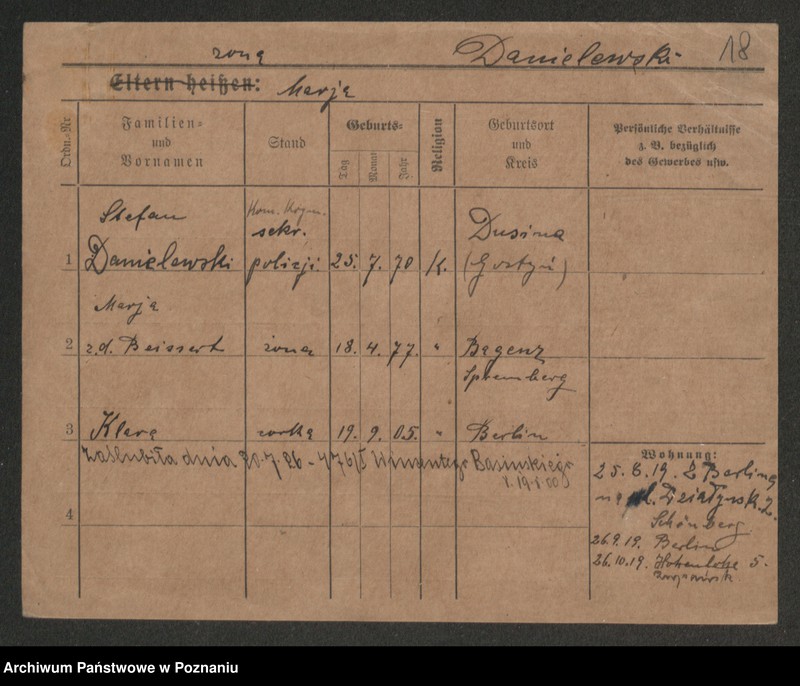 żona Danielewski 18
Eltern heißen: Marja
Ordn.-Nr
Familien- und Vornamen
Stand
Geburts-
Tag
Monat
Jahr
Religion
Geburtsort und Kreis
Persönliche Verhältnisse z. B. bezüglich des Gewerbes usw.
Stefan
sekr.
Dusina
1 Danielewski policji 25. 7. 70 K. (Gostyń)
Marja
2 z.d. Beissert żona 18. 4. 77. " Bagenz
Spremberg
3 Klara córka 19. 9. 05. " Berlin
Zaślubiła dnia 20.7.26 - 476/I Wincentego Basińskiego
Wohnung:
25.6.19. z Berlina
na ul. Działyńsk. 2.
Schönberg
4
26.9.19. Berlin
26.10.19. 5.